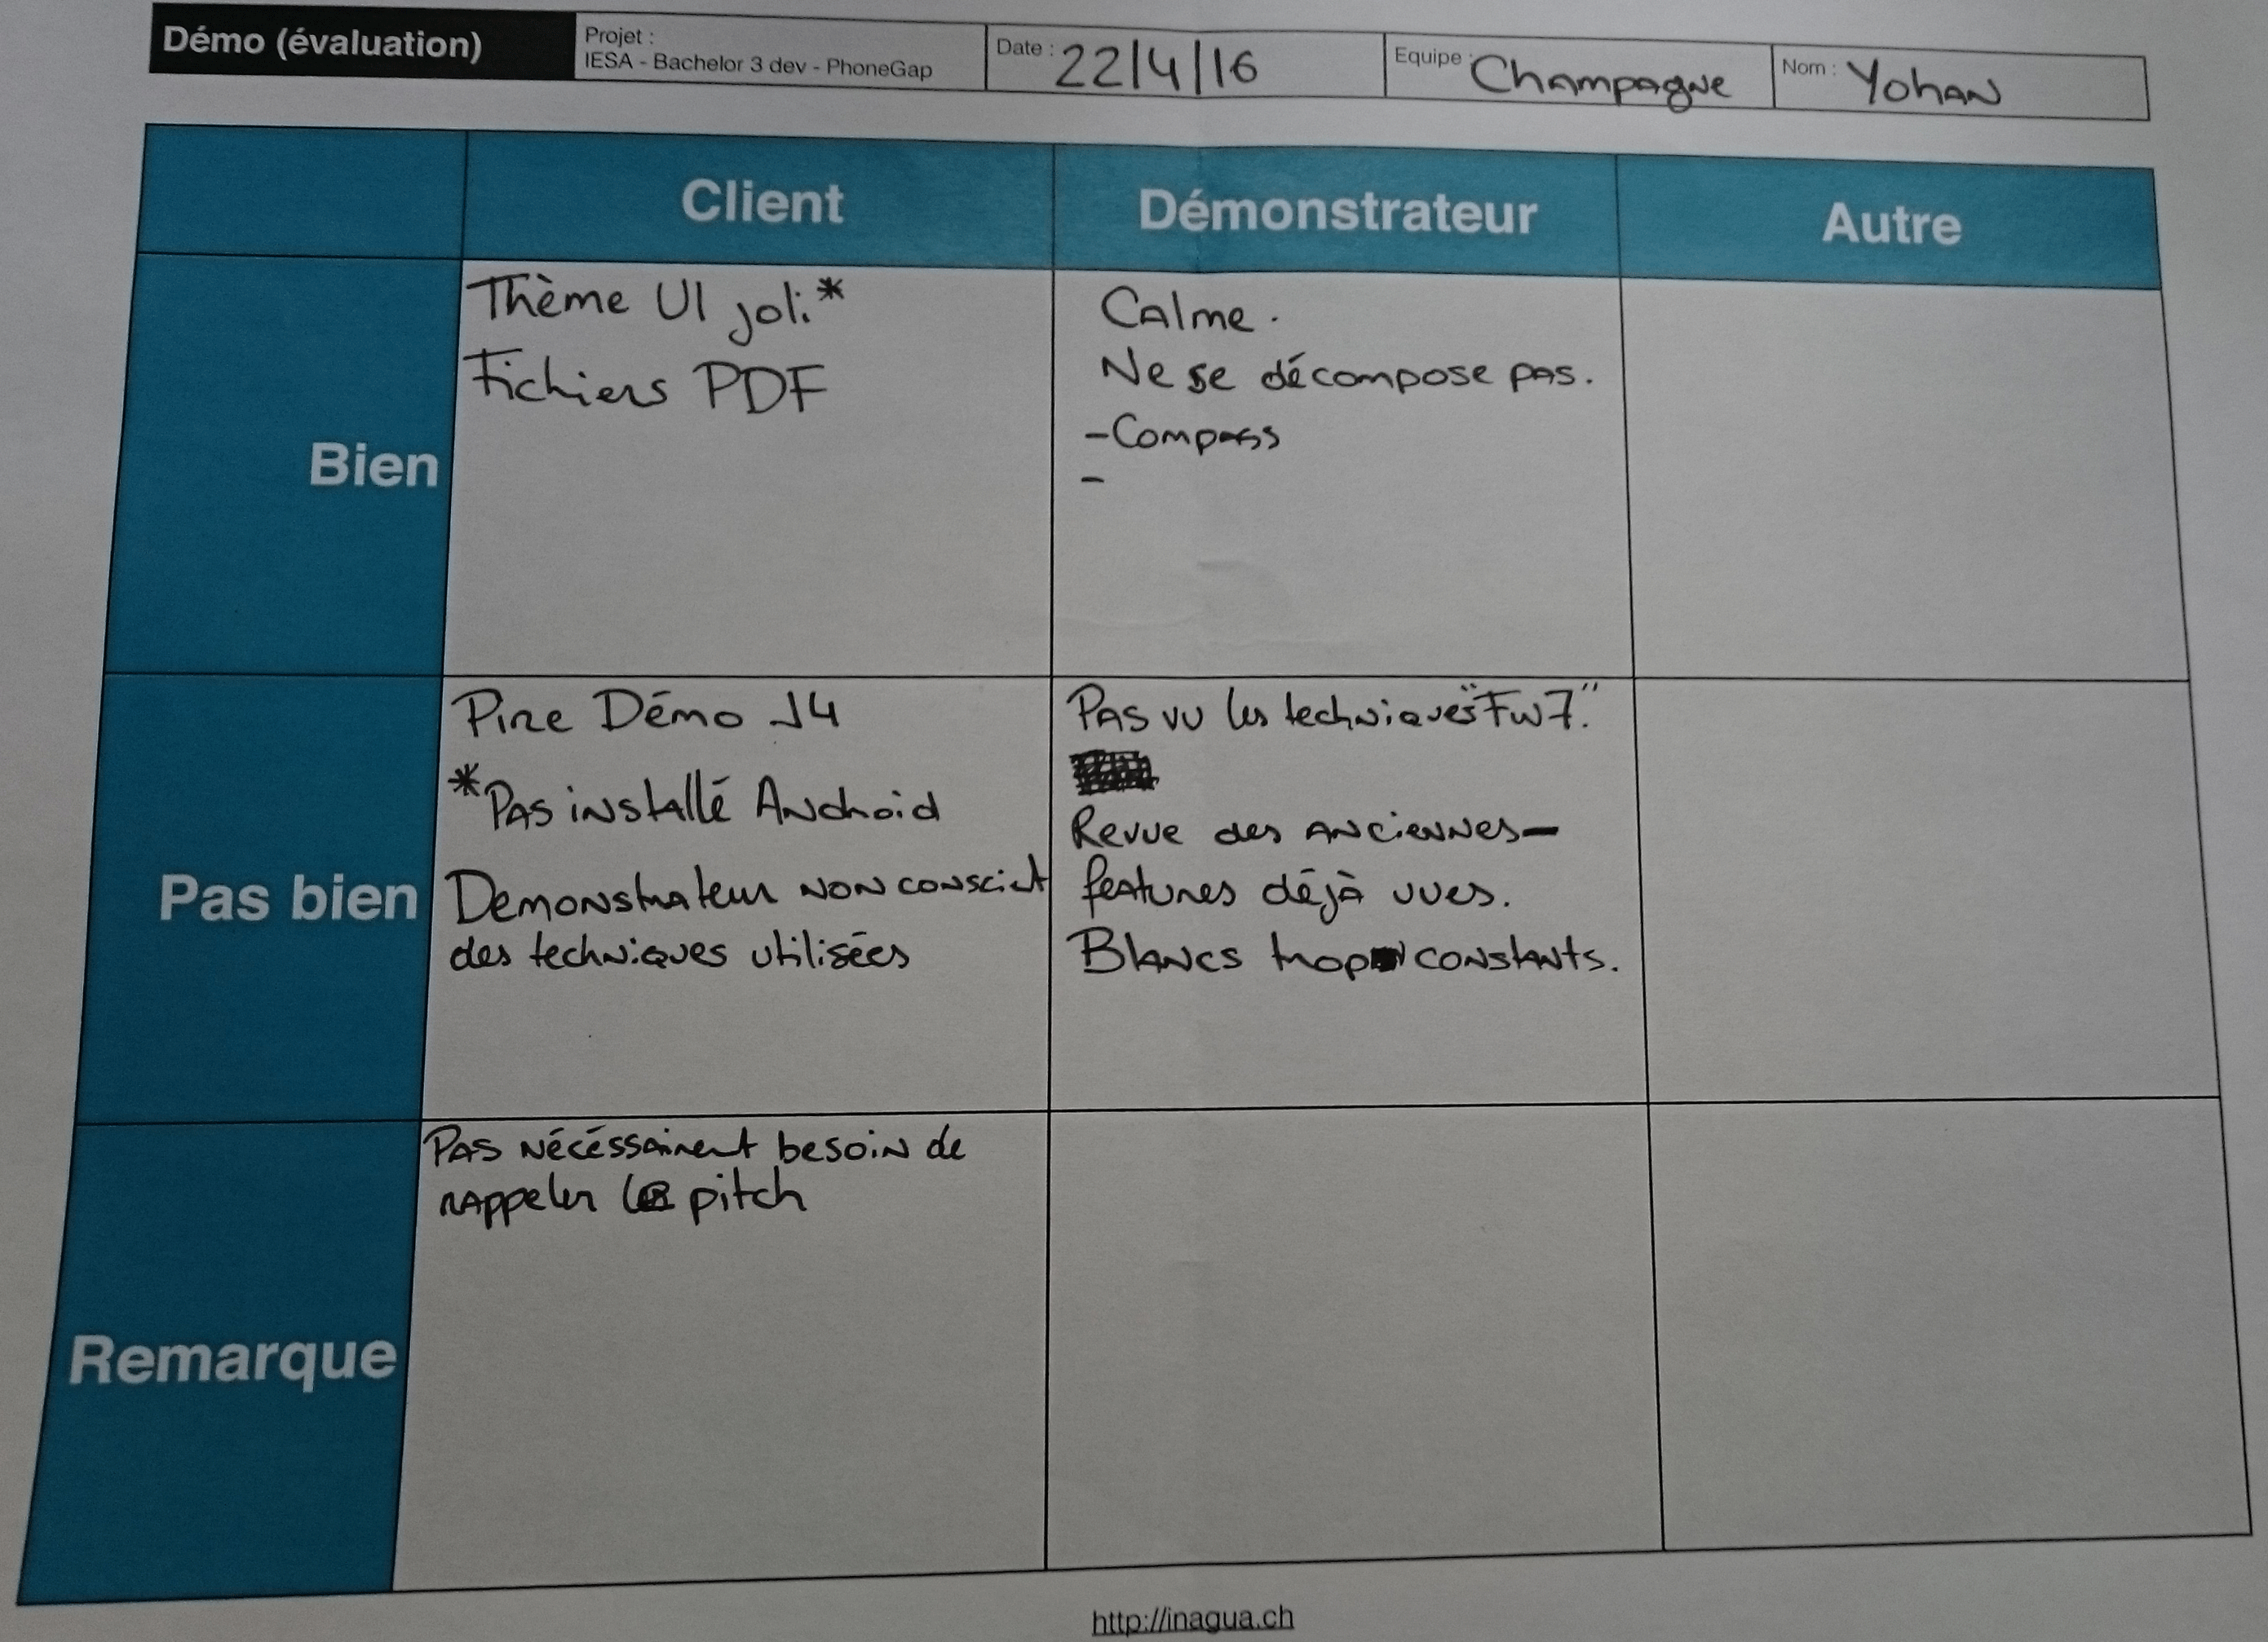 Démo (évaluation)
Projet :
IESA - Bachelor 3 dev - PhoneGap
Date : 22/4/16
Equipe : Champagne
Nom : Yohan
Client
Démonstrateur
Autre
Bien
Thème UI joli *
Fichiers PDF
Calme.
Ne se décompose pas.
- Compass
-
Pas bien
Pire Démo J4
* Pas installé Android
Demonstrateur non conscient
des techniques utilisées
Pas vu les techniques "FW7".
Revue des anciennes
features déjà vues.
Blancs trop constants.
Remarque
Pas nécéssairement besoin de
rappeler le pitch
http://inagua.ch